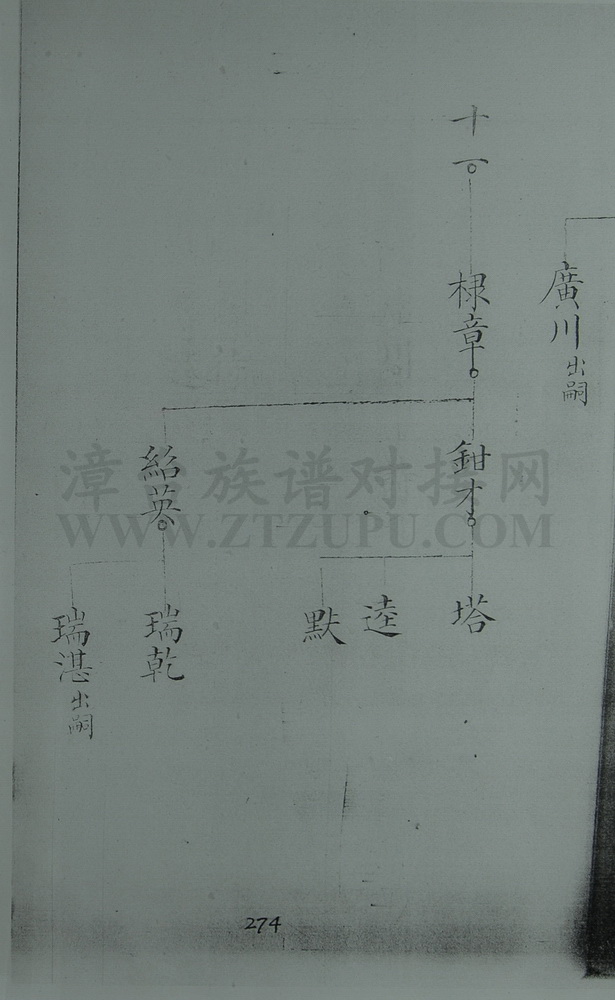 廣川出嗣
十一
棣章
鉗才
紹英
塔
逵
默
瑞乾
瑞湛出嗣
漳台族谱对接网
WWW.ZTZUPU.COM
274